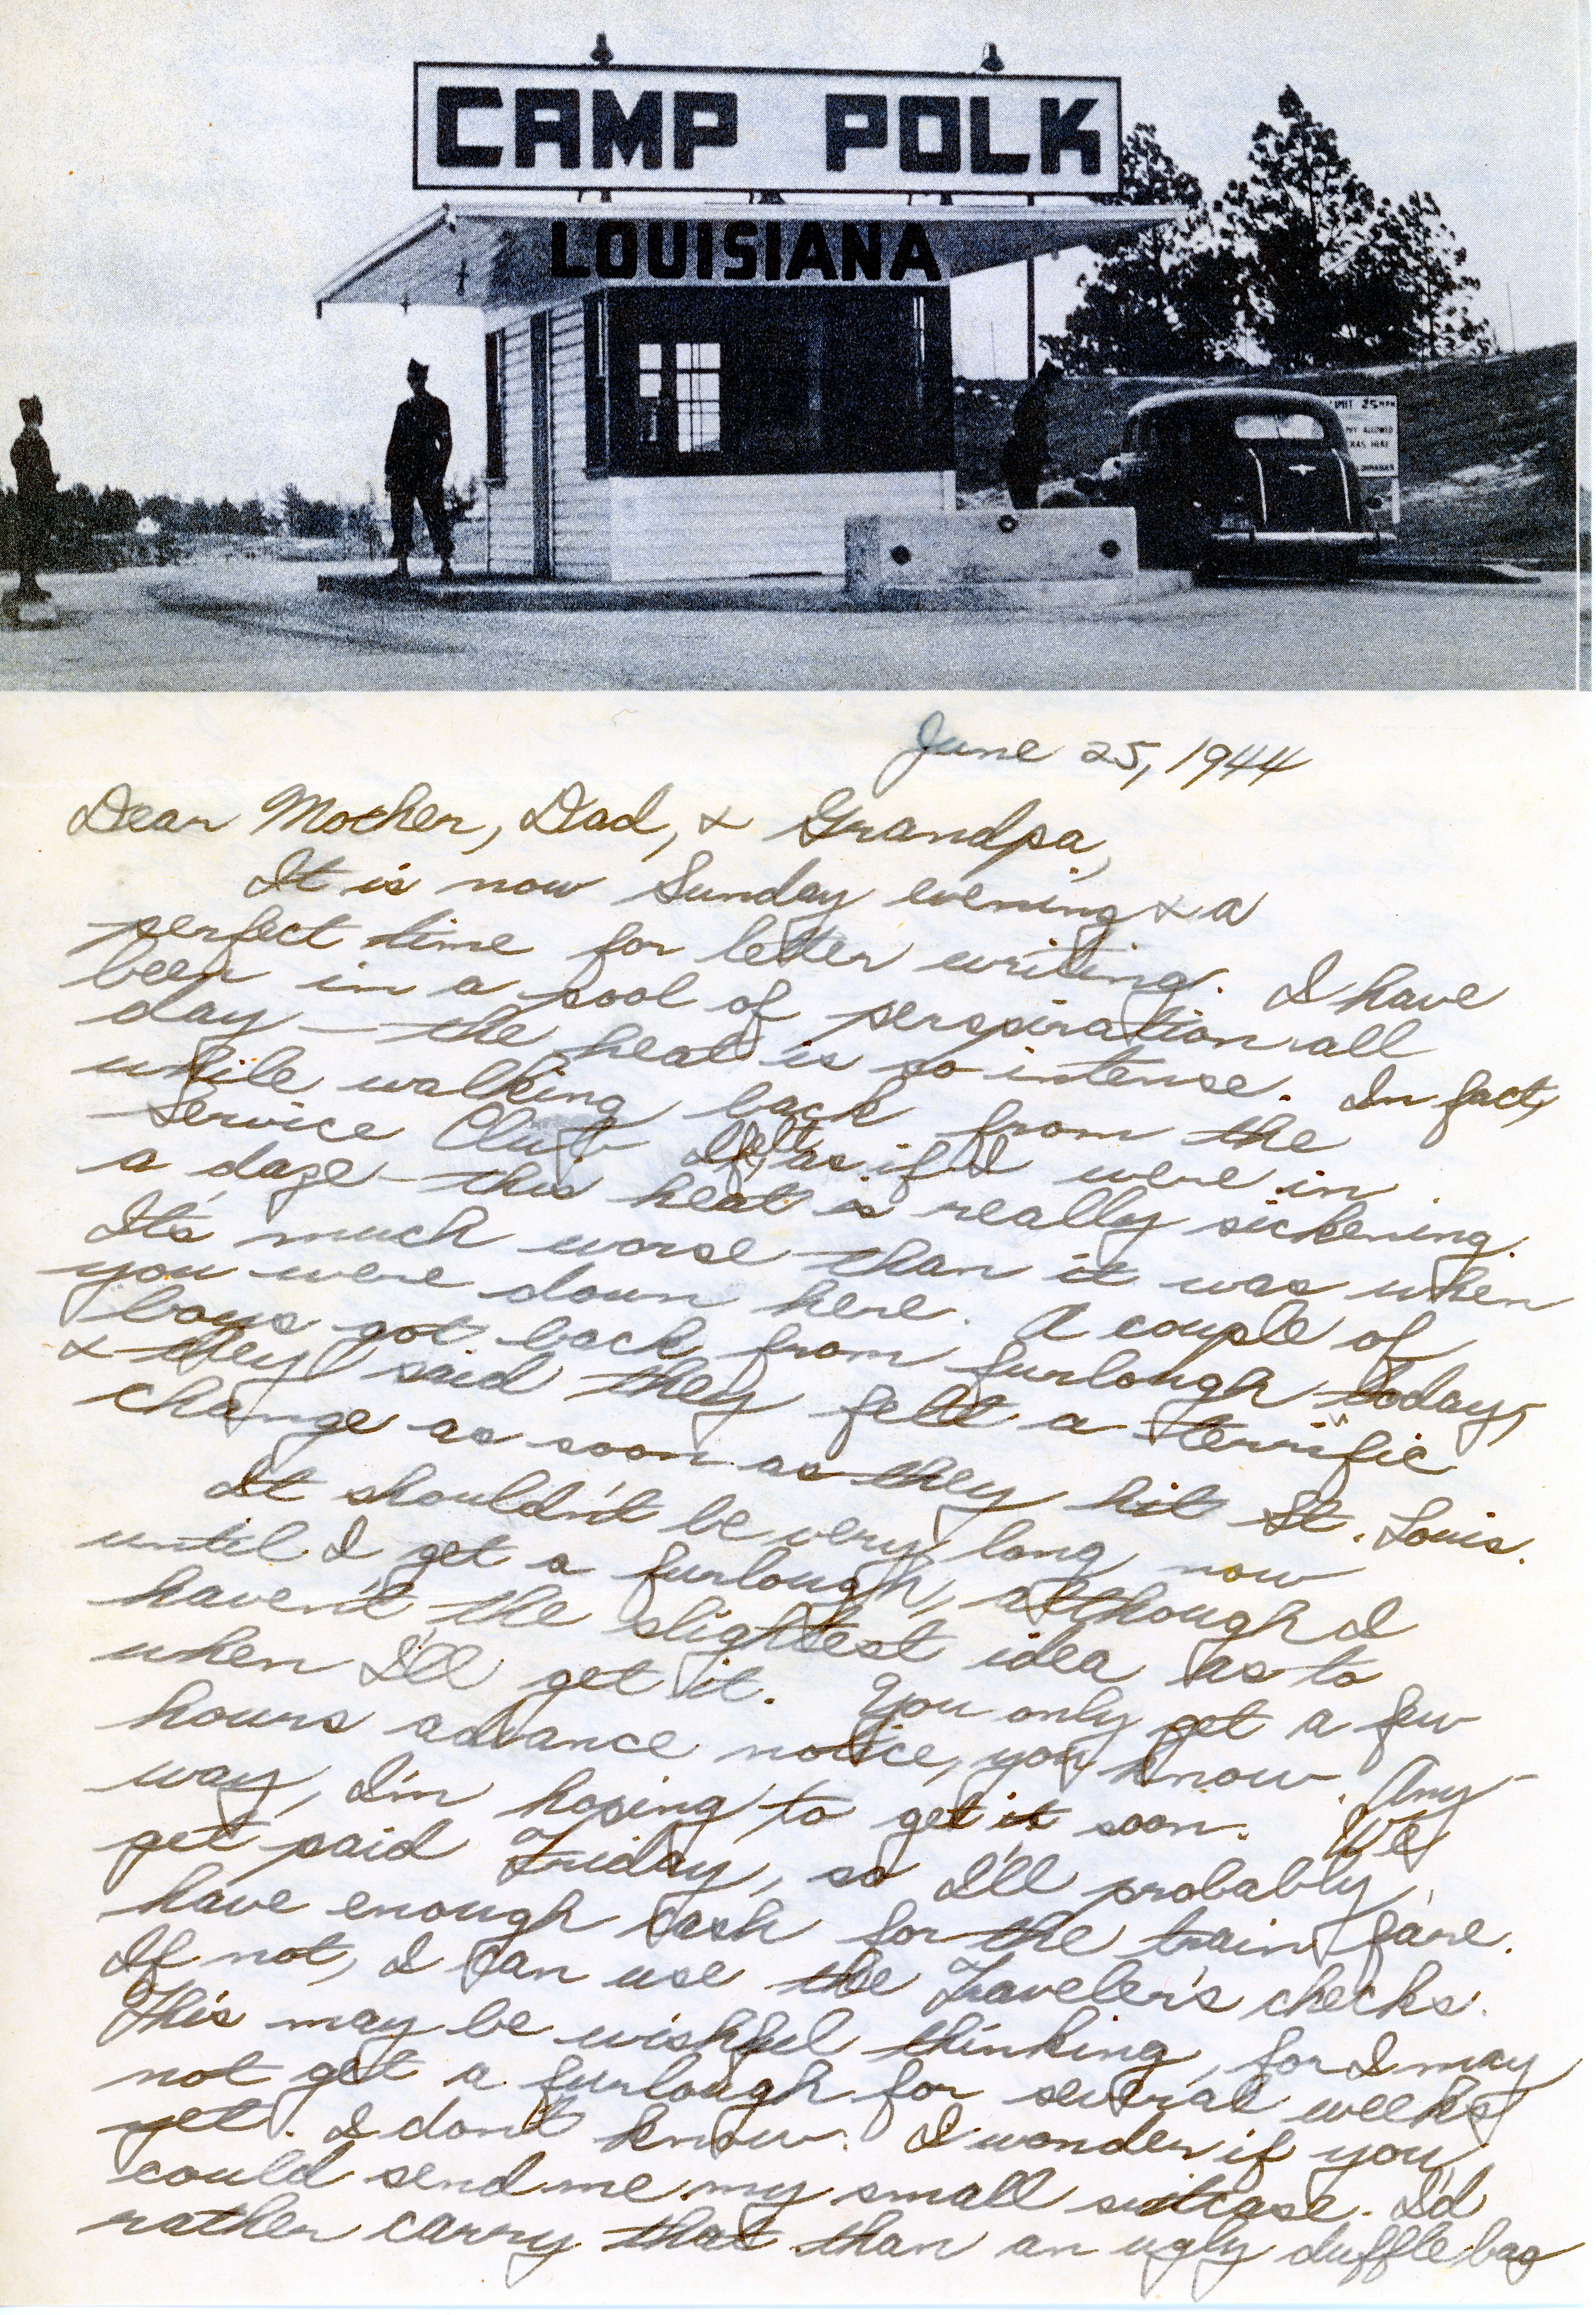 CAMP POLK
LOUISIANA
LIMIT 25 MPH
ALLOWED
HERE
June 25, 1944
Dear Mother, Dad, & Grandpa,
It is now Sunday evening & a
perfect time for letter writing. I have
been in a pool of perspiration all
day – the heat is so intense. In fact,
while walking back from the
Service Club I felt as if I were in
a daze – this heat is really sickening.
It's much worse than it was when
you were down here. A couple of
boys got back from furlough today,
& they said they felt a terrific
change as soon as they hit St. Louis.
It shouldn't be very long now
until I get a furlough, although I
haven't the slightest idea as to
when I'll get it. You only get a few
hours advance notice, you know. Any-
way, I'm hoping to get it soon. We
get paid Friday, so I'll probably
have enough cash for the train fare.
If not, I can use the Traveler's checks.
This may be wishful thinking, for I may
not get a furlough for several weeks
yet. I don't know. I wonder if you
could send me my small suitcase. I'd
rather carry that than an ugly duffle bag